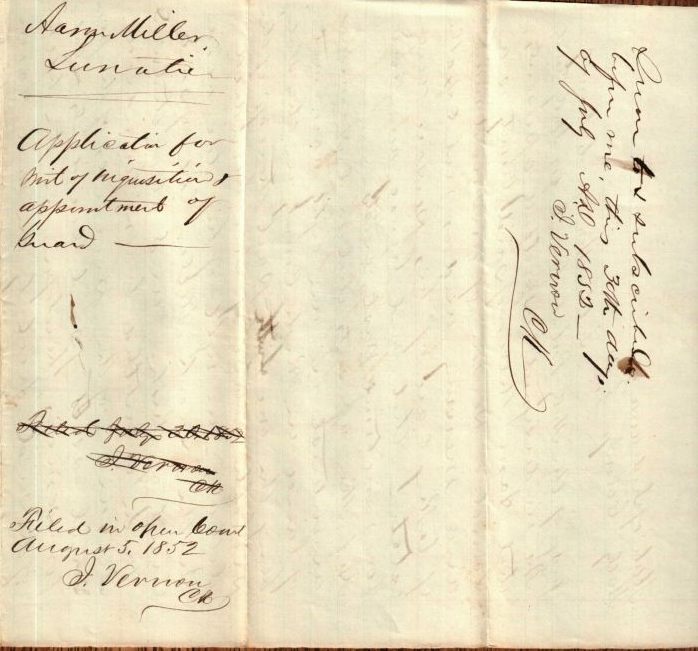 Aaron Miller
Lunatic
Application for
Writ of inquisition &
appointment of
Guard
Filed July 30 1852
I. Vernon
Clk
Filed in open Court
August 5, 1852
I. Vernon
Clk
Sworn to & subscribed
before me, this 30th day
of July AD 1852
I. Vernon
Clk